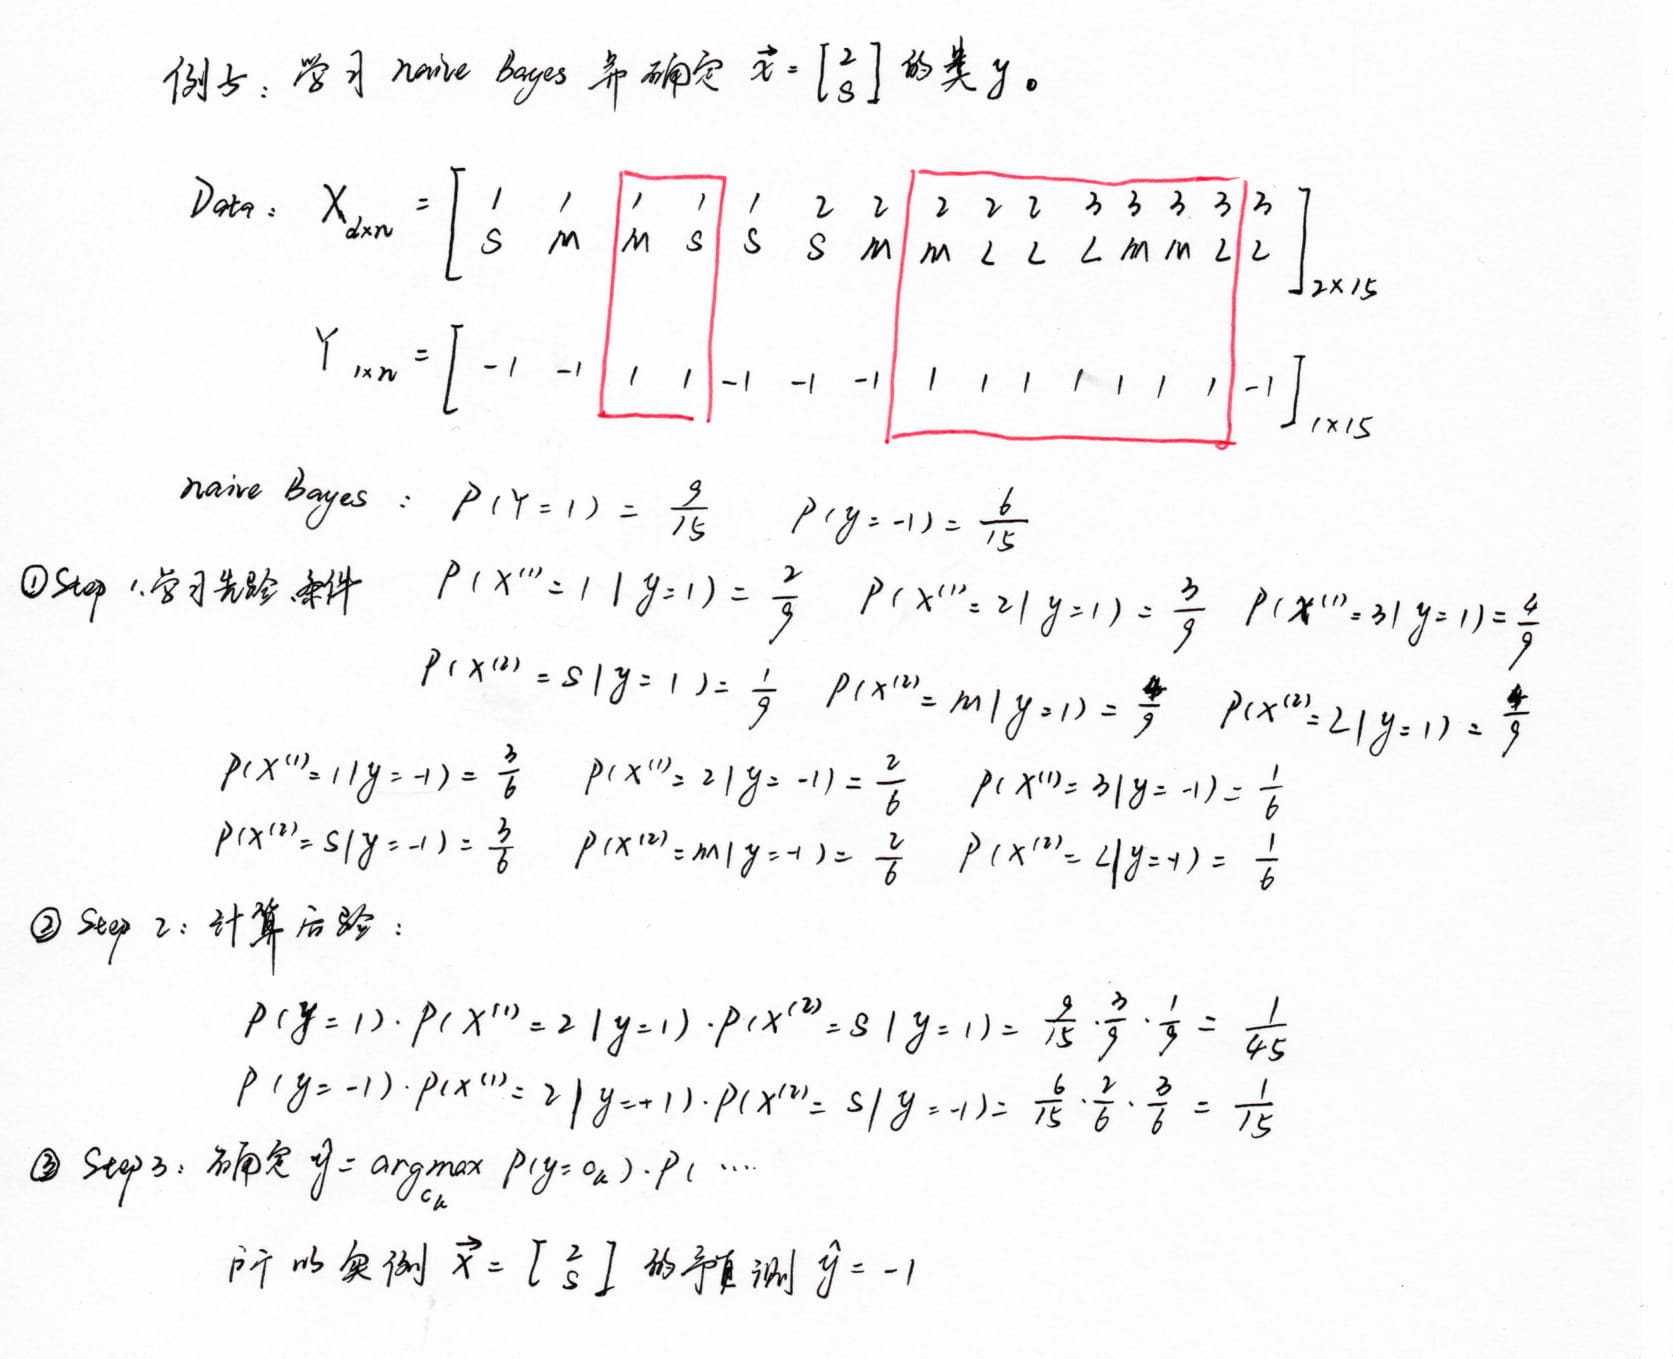 例子：学习 naive Bayes 并确定 x⃗ = [2 S] 的类 y。
Data: X d×n = [ 1 1 1 1 1 2 2 2 2 2 3 3 3 3 3
S M M S S S M M L L L M M L L ] 2×15
Y 1×n = [ -1 -1 1 1 -1 -1 -1 1 1 1 1 1 1 1 -1 ] 1×15
naive Bayes : P(Y=1) = 9/15 P(y=-1) = 6/15
① Step 1. 学习先验、条件 P(X⁽¹⁾=1|y=1) = 2/9 P(X⁽¹⁾=2|y=1) = 3/9 P(X⁽¹⁾=3|y=1) = 4/9
P(X⁽²⁾=S|y=1) = 1/9 P(X⁽²⁾=M|y=1) = 4/9 P(X⁽²⁾=L|y=1) = 4/9
P(X⁽¹⁾=1|y=-1) = 3/6 P(X⁽¹⁾=2|y=-1) = 2/6 P(X⁽¹⁾=3|y=-1) = 1/6
P(X⁽²⁾=S|y=-1) = 3/6 P(X⁽²⁾=M|y=-1) = 2/6 P(X⁽²⁾=L|y=-1) = 1/6
② Step 2: 计算后验:
P(y=1)·P(X⁽¹⁾=2|y=1)·P(X⁽²⁾=S|y=1) = 9/15·3/9·1/9 = 1/45
P(y=-1)·P(X⁽¹⁾=2|y=-1)·P(X⁽²⁾=S|y=-1) = 6/15·2/6·3/6 = 1/15
③ Step 3: 确定 ŷ = argmax cₖ P(y=cₖ)·P( ....
所以实例 x⃗ = [2 S] 的预测 ŷ = -1